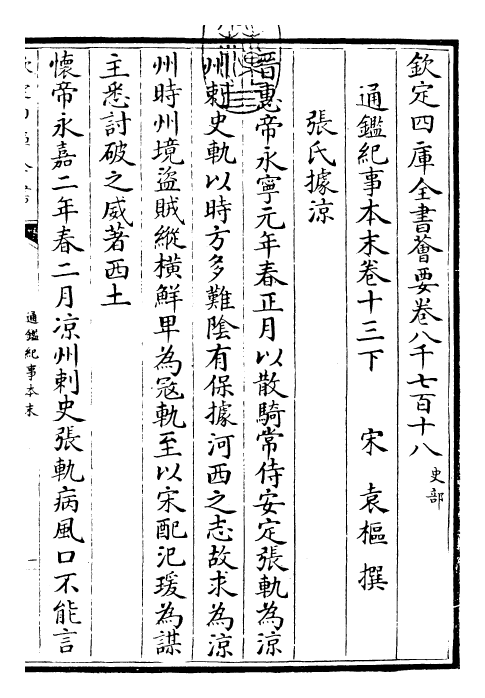 欽定四庫全書薈要卷八千七百十八 史部
通鑑紀事本末卷十三下 宋 袁樞 撰
張氏據涼
晉惠帝永寧元年春正月以散騎常侍安定張軌為涼
州刺史軌以時方多難陰有保據河西之志故求為涼
州時州境盜賊縱橫鮮卑為寇軌至以宋配氾瑗為謀
主悉討破之威著西土
懷帝永嘉二年春二月涼州刺史張軌病風口不能言
通鑑紀事本末